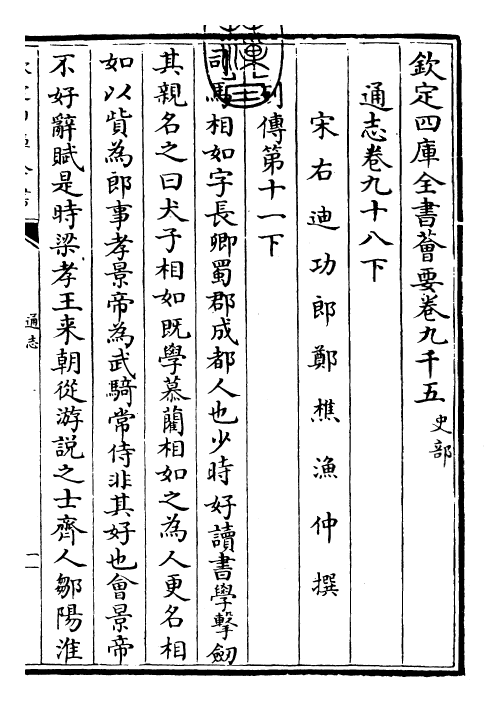 欽定四庫全書薈要卷九千五史部
通志卷九十八下
宋右迪功郎鄭樵漁仲撰
列傳第十一下
司馬相如字長卿蜀郡成都人也少時好讀書學擊劒
其親名之曰犬子相如既學慕藺相如之為人更名相
如以貲為郎事孝景帝為武騎常侍非其好也會景帝
不好辭賦是時梁孝王来朝從游說之士齊人鄒陽淮
通志
一